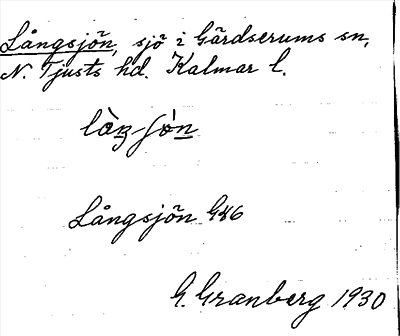 Långsjön, sjö i Gärdserums sn,
N. Tjusts hd. Kalmar l.
Långsjön G46
G. Granberg 1930